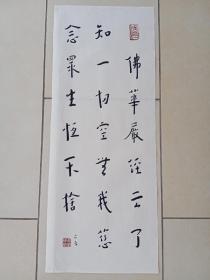 佛華嚴經云了
知一切空無我慈
念眾生恆不捨